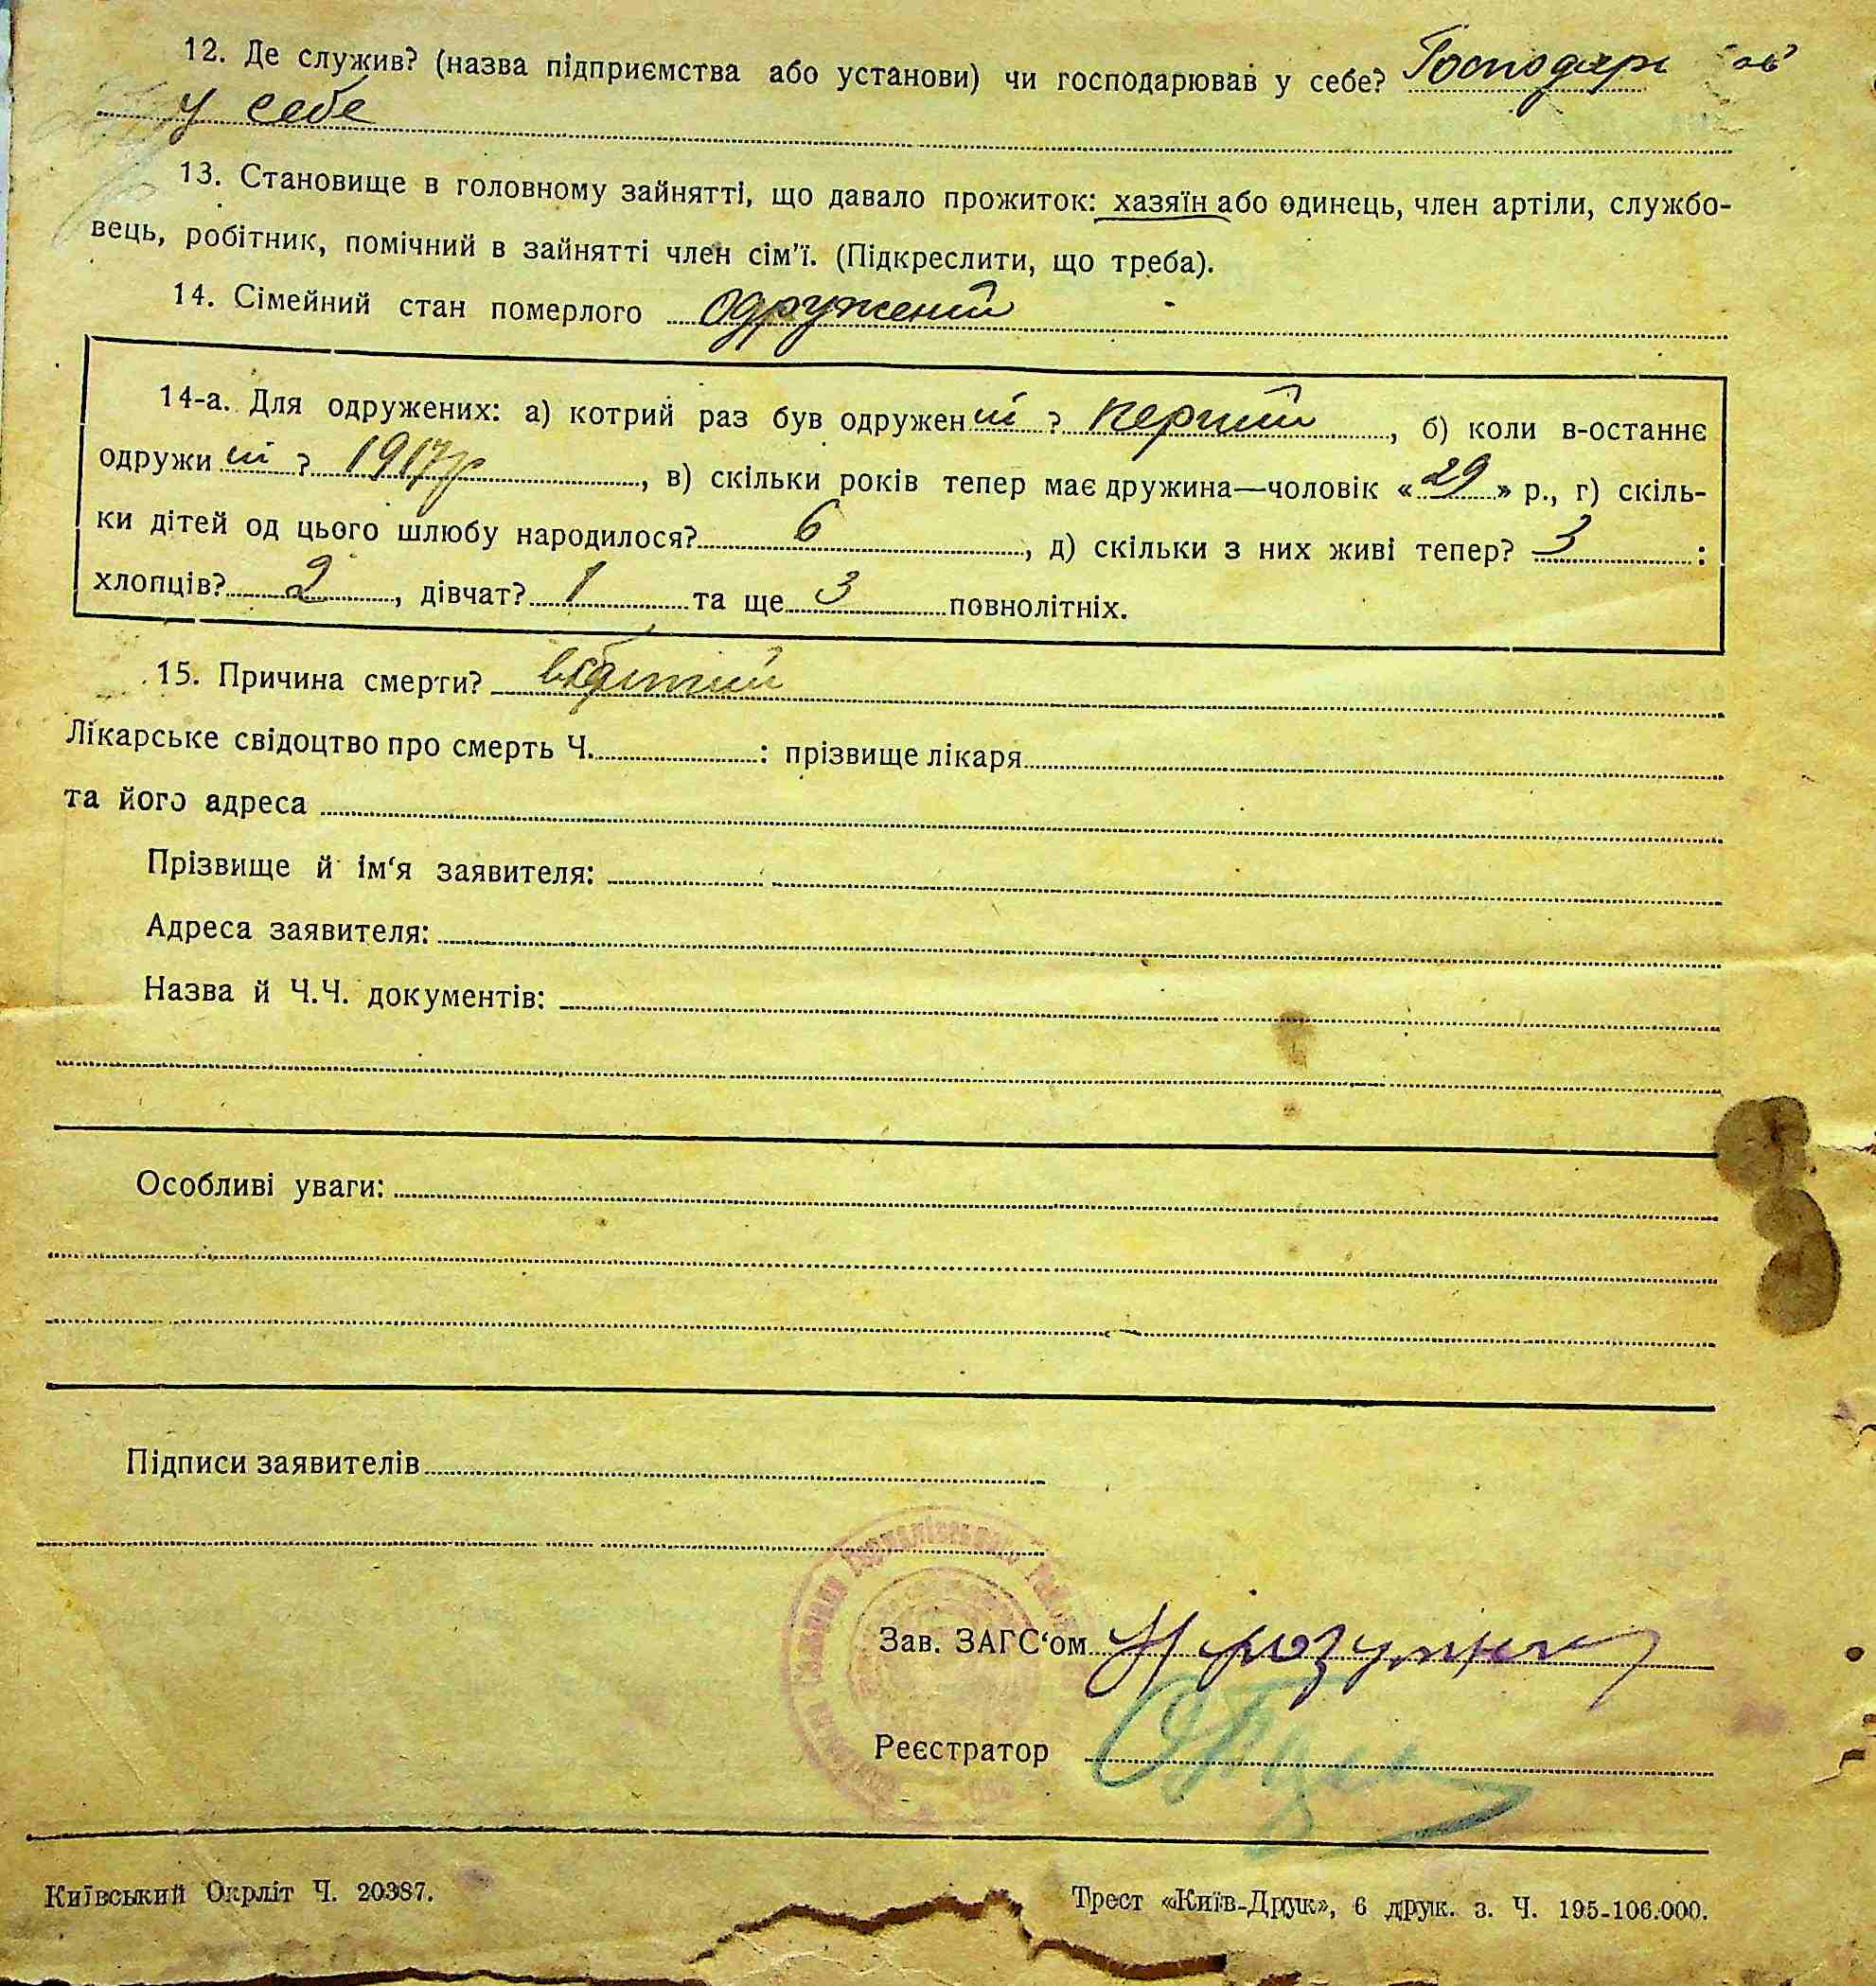 12. Де служив? (назва підприємства або установи) чи господарював у себе? Господарюв
у себе
13. Становище в головному зайнятті, що давало прожиток: хазяїн або одинець, член артіли, службо-
вець, робітник, помічний в зайнятті член сім'ї. (Підкреслити, що треба).
14. Сімейний стан померлого одружений
14-а. Для одружених: а) котрий раз був одружен ий ? перший, б) коли в-останнє
одружи ? 1917р, в) скільки років тепер має дружина—чоловік «29» р., г) скіль-
ки дітей од цього шлюбу народилося? 6, д) скільки з них живі тепер? 3:
хлопців? 2, дівчат? 1 та ще 3 повнолітніх.
15. Причина смерти?
Лікарське свідоцтво про смерть Ч. : прізвище лікаря
та його адреса
Прізвище й ім'я заявителя:
Адреса заявителя:
Назва й Ч.Ч. документів:
Особливі уваги:
Підписи заявителів
Зав. ЗАГС'ом
Реєстратор
Київський Окрліт Ч. 20387.
Трест «Київ-Друк», 6 друк. з. Ч. 195-106.000.